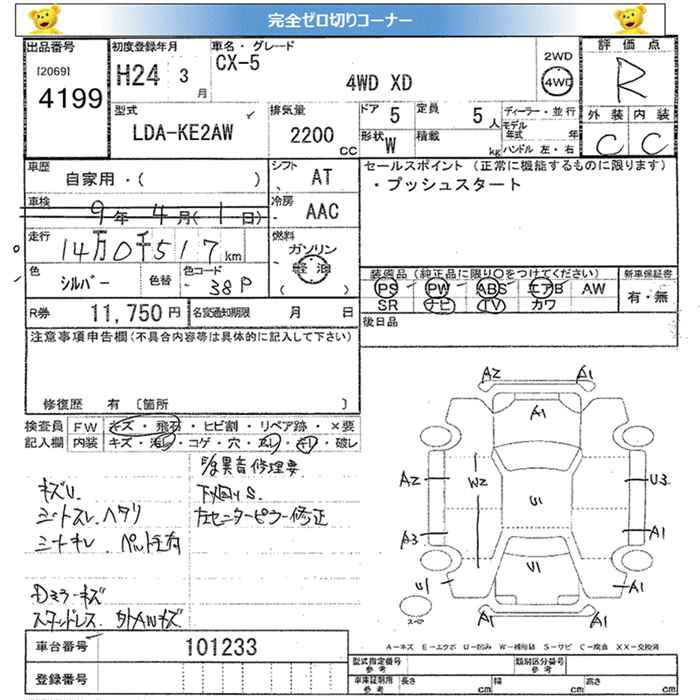 完全ゼロ切りコーナー
出品番号 [2069] 4199
初度登録年月 H24 3月
車名・グレード CX-5 4WD XD
2WD 4WD
評価点 R
外装 内装
C C
型式 LDA-KE2AW
排気量 2200 CC
ドア 5 定員 5人
形状 W 積載 kg
ディーラー・並行
モデル年式 年
ハンドル 左・右
車歴 自家用・( )
シフト AT
車検 9年 4月(1日)
冷房 AAC
走行 14万0千517km
燃料 ガソリン 軽油
色 シルバー 色替 色コード 38P
R券 11,750円 名変通知期限 月 日
セールスポイント(正常に機能するものに限ります)
・プッシュスタート
装備品(純正品に限り○をつけてください)
PS PW ABS エアB AW
SR ナビ TV カワ
新車保証書 有・無
後日品
注意事項申告欄(不具合内容等は具体的に記入して下さい)
修復歴 有 〔箇所 〕
検査員記入欄
FW キズ・飛石・ヒビ割・リペア跡・×要
内装 キズ・汚レ・コゲ・穴・スレ・キレ・破レ
異音修理要
キズU.
下メ回りS.
シートスレ.ヘタリ
左センターピラー修正
シートキレ
Dミラーキズ
スタッドレス.
A2 A1
A1
A2 W2 U1 U3
A3 A1
U1 U1 A1
A1 A1
スペア
A-キズ E-エクボ U-凹み W-補修跡 S-サビ C-腐食 XX-交換済
車台番号 101233
登録番号
型式指定番号 参考
類別区分番号 参考
車庫証明用 参考 長さ cm 幅 cm 高さ cm